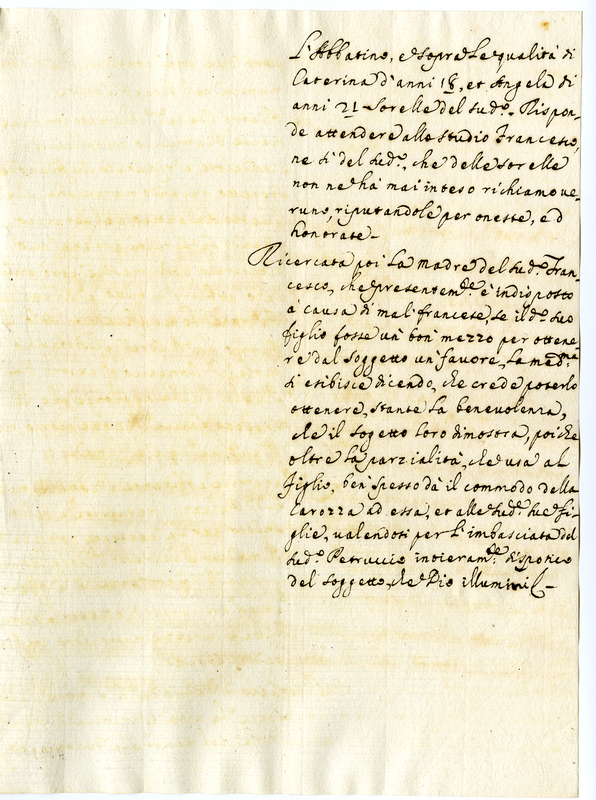 L'Abbatino, e sopra le qualità di
Caterina d'anni 18, et Angela di
anni 21 sorelle del sud.º. Rispon-
de attendere allo studio Francesco,
ne sà del sud.º, che delle sorelle
non ne hà mai inteso richiamo ve-
runo, riputandole per oneste, ed
honorate.
Ricercata poi la madre del sud.º Fran-
cesco, che presentem.te è indisposto
à causa di mal francese, se il d.º suo
figlio fosse un bon mezzo per ottene-
re dal soggetto un favore, la med.ma
si esibisce dicendo, che crede poterlo
ottenere, stante la benevolenza,
che il sogetto loro dimostra, poiche
oltre la parzialità, che usa al
figlio, ben spesso dà il commodo della
Carozza ad essa, et alle sud.e sue fi-
glie, valendosi per l'imbasciata del
sud.º Petruccio intieram.te dispotico
del soggetto, che Dio illumini